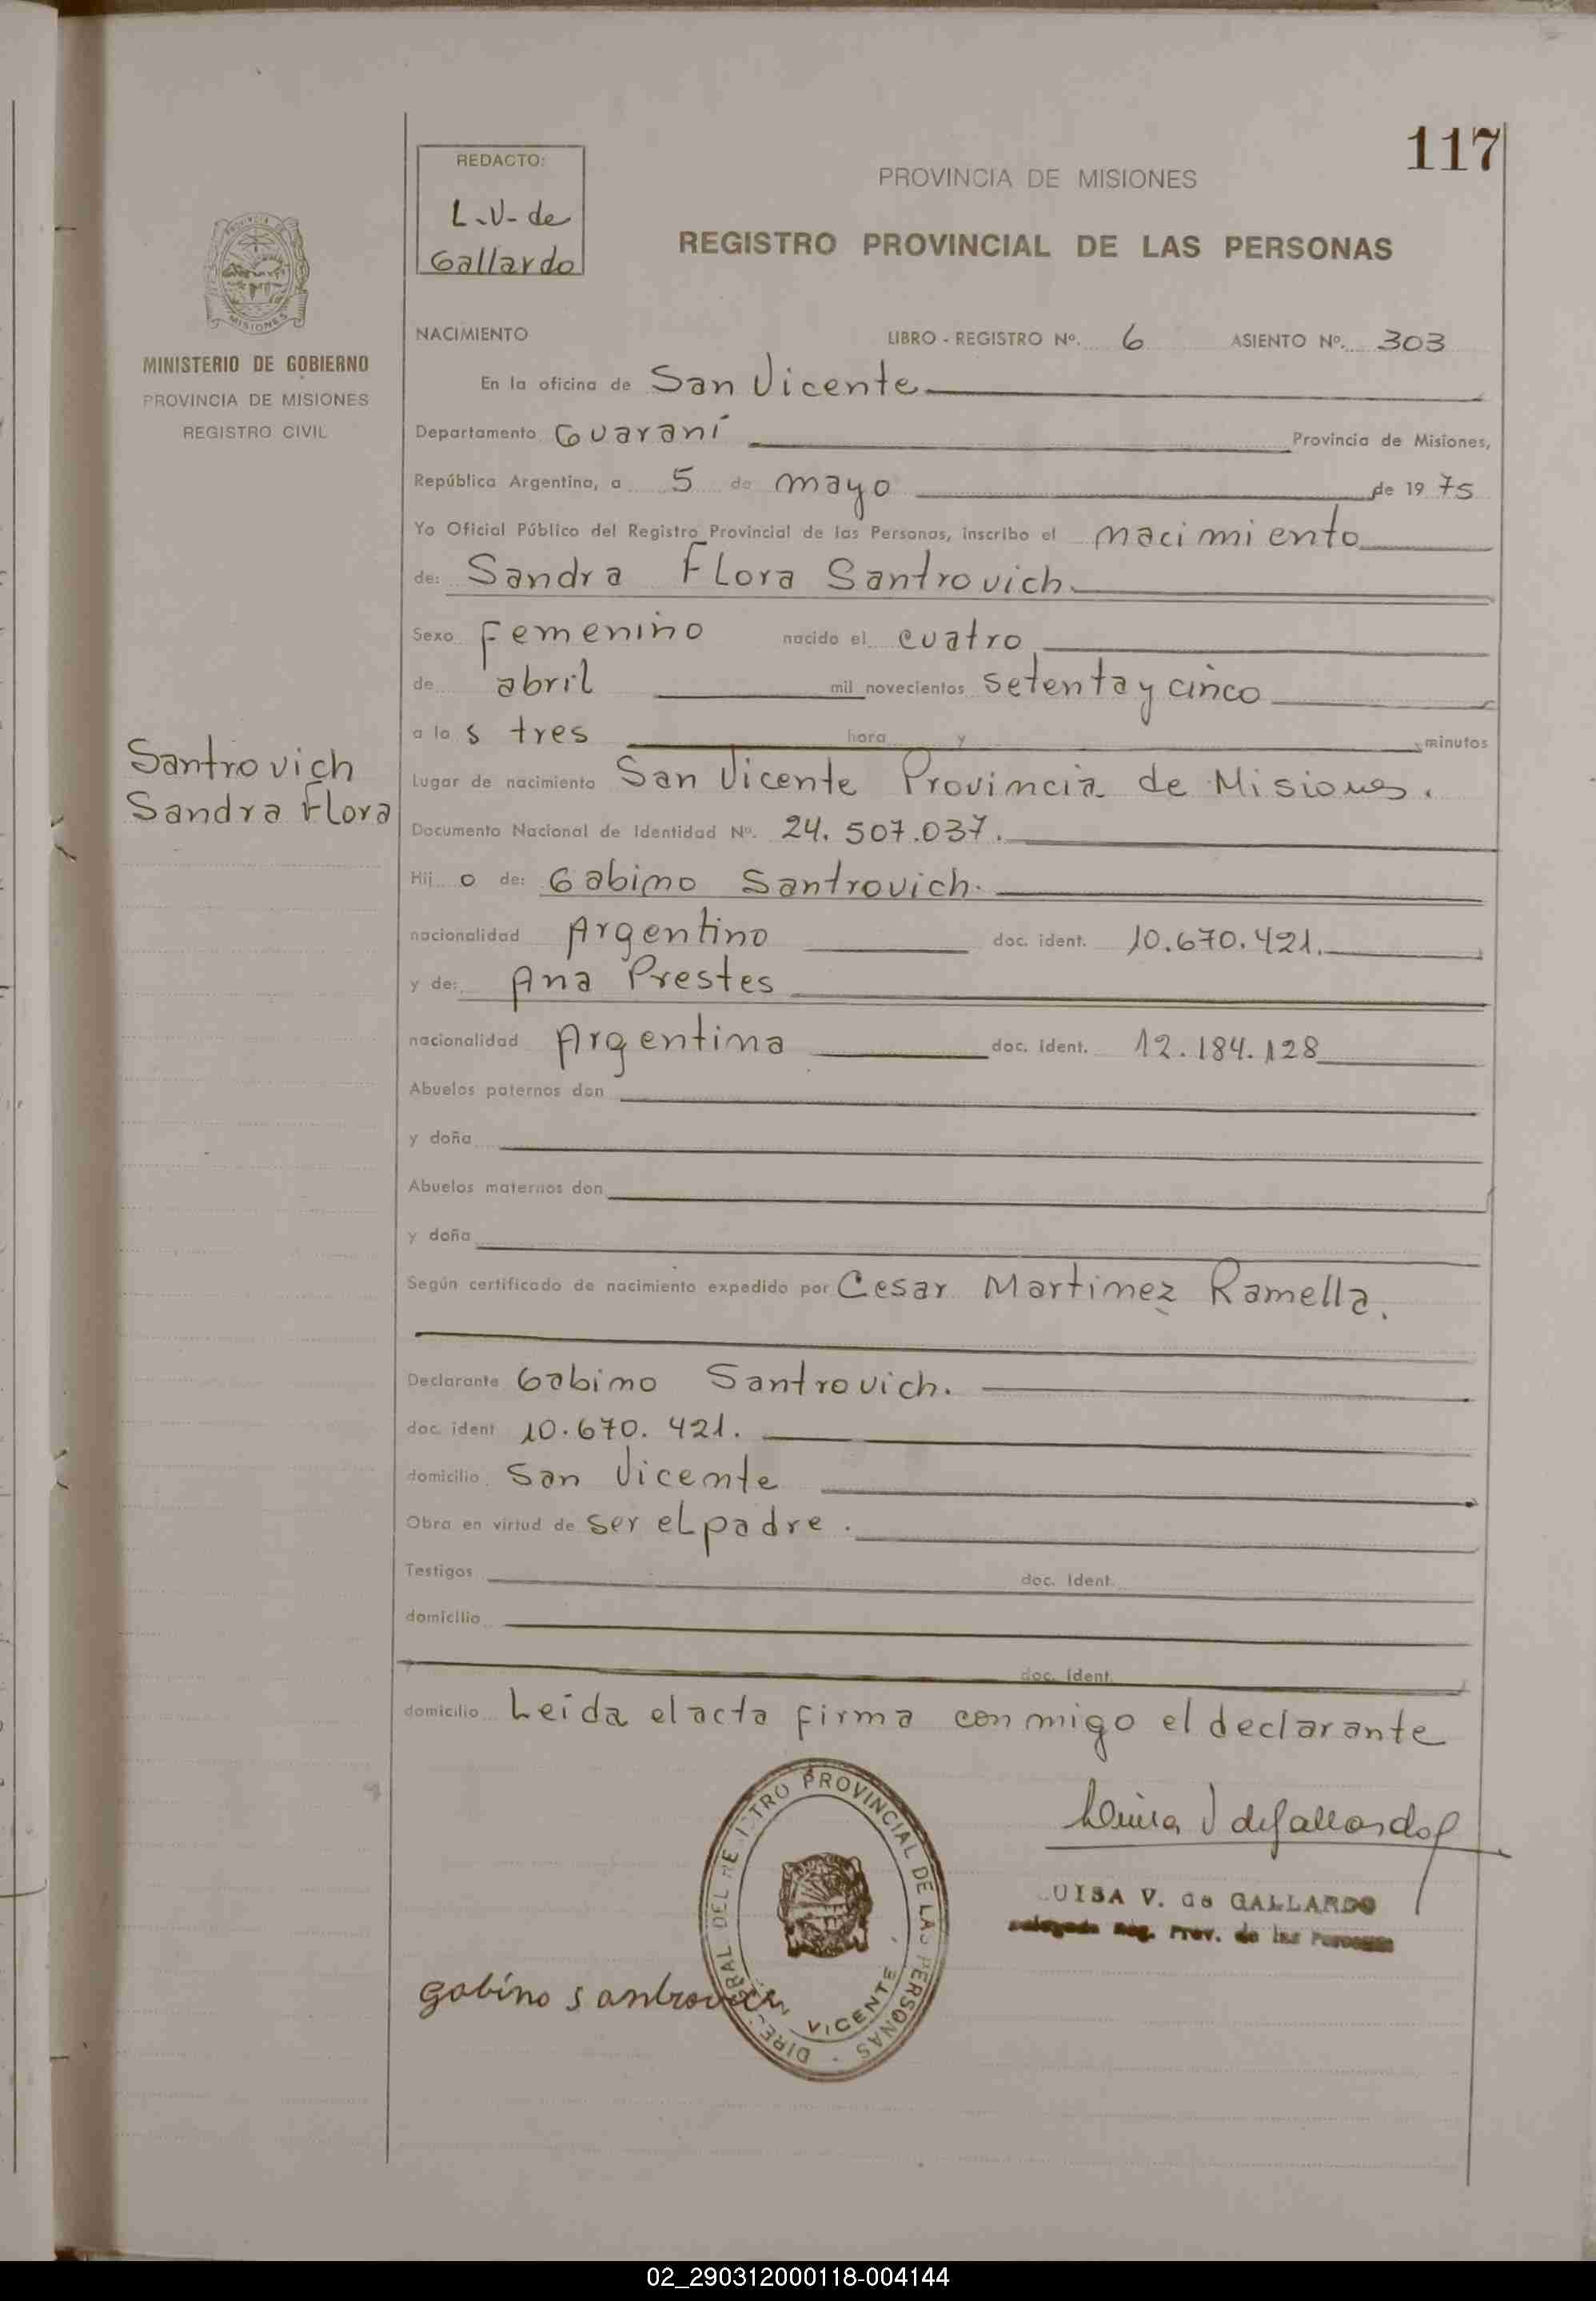 117
REDACTO:
L.V. de
Gallardo
PROVINCIA DE MISIONES
REGISTRO PROVINCIAL DE LAS PERSONAS
MISIONES
MINISTERIO DE GOBIERNO
PROVINCIA DE MISIONES
REGISTRO CIVIL
NACIMIENTO LIBRO - REGISTRO Nº. 6 ASIENTO Nº. 303
En la oficina de San Vicente
Departamento Guaraní Provincia de Misiones,
República Argentina, a 5 de mayo de 1975
Yo Oficial Público del Registro Provincial de las Personas, inscribo el nacimiento
de: Sandra Flora Santrovich
Sexo Femenino nacido el cuatro
de abril mil novecientos setenta y cinco
a las tres hora y minutos
Santrovich
Sandra Flora
Lugar de nacimiento San Vicente Provincia de Misiones.
Documento Nacional de Identidad Nº. 24.507.037.
Hijo de: Gabino Santrovich.
nacionalidad Argentino doc. ident. 10.670.421.
y de: Ana Prestes
nacionalidad Argentina doc. ident. 12.184.128
Abuelos paternos don
y doña
Abuelos maternos don
y doña
Según certificado de nacimiento expedido por Cesar Martinez Ramella.
Declarante Gabino Santrovich.
doc. ident 10.670.421.
domicilio San Vicente
Obra en virtud de ser el padre.
Testigos doc. Ident.
domicilio
doc. Ident.
domicilio Leída el acta firma conmigo el declarante
Luisa V de Gallardo
UISA V. de GALLARDO
Reg. Prov. de las Personas
gabino santrovich
DIRE RAL DEL RE STRO PROVINCIAL DE LAS PERSONAS
VICENTE
02_290312000118-004144